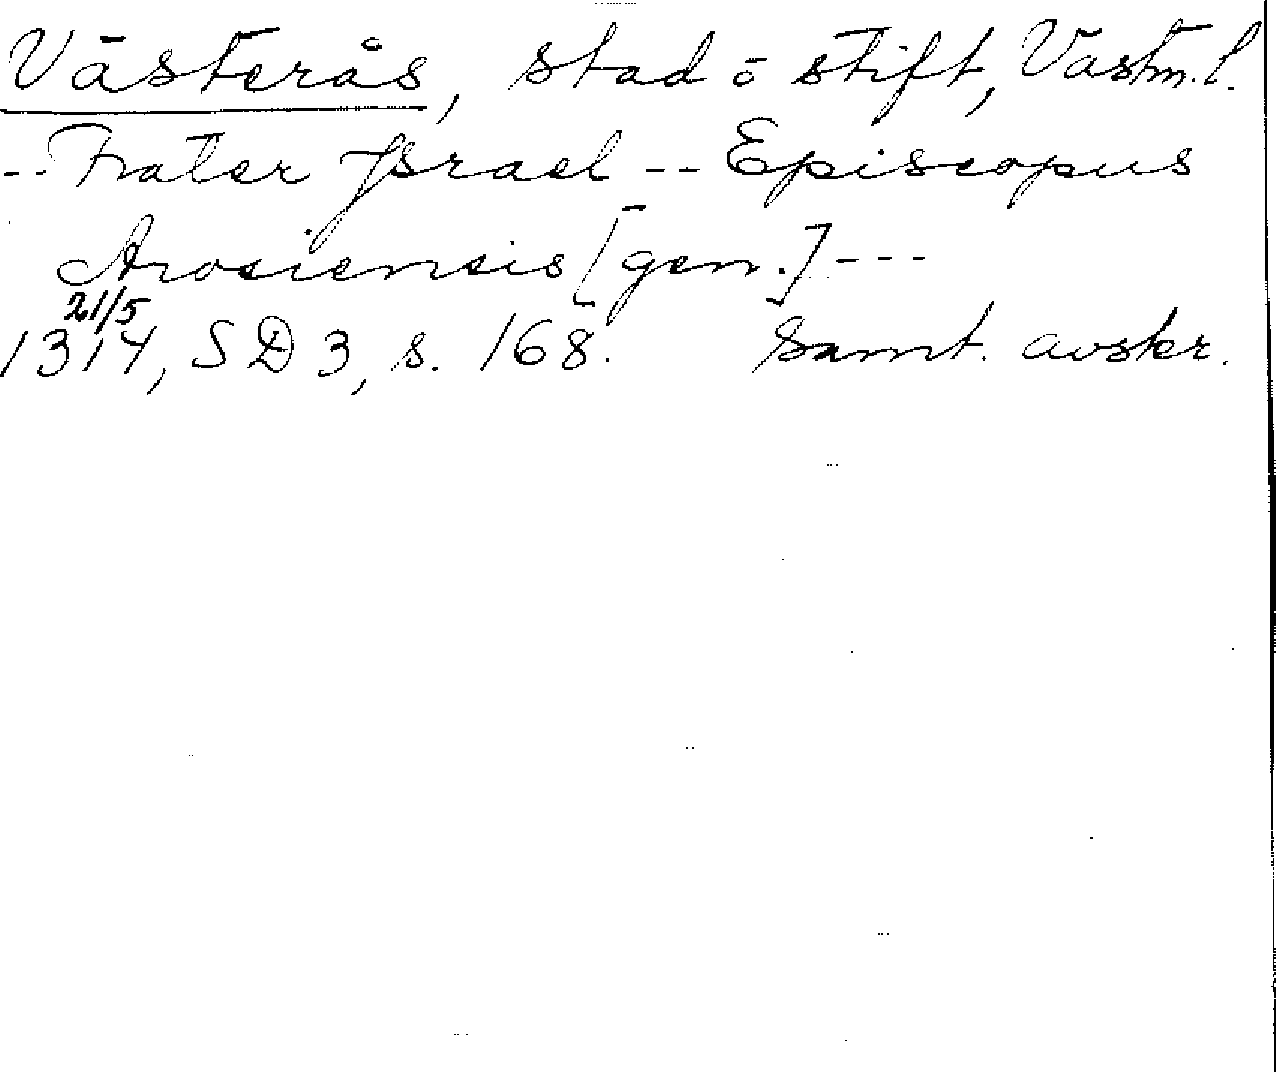 Västerås, stad ö stift, Västm.l.
-- Frater Israel -- Episcopus
Arosiensis [gen.] ---
21/5
1314, SD 3, s. 168. Samt. avskr.